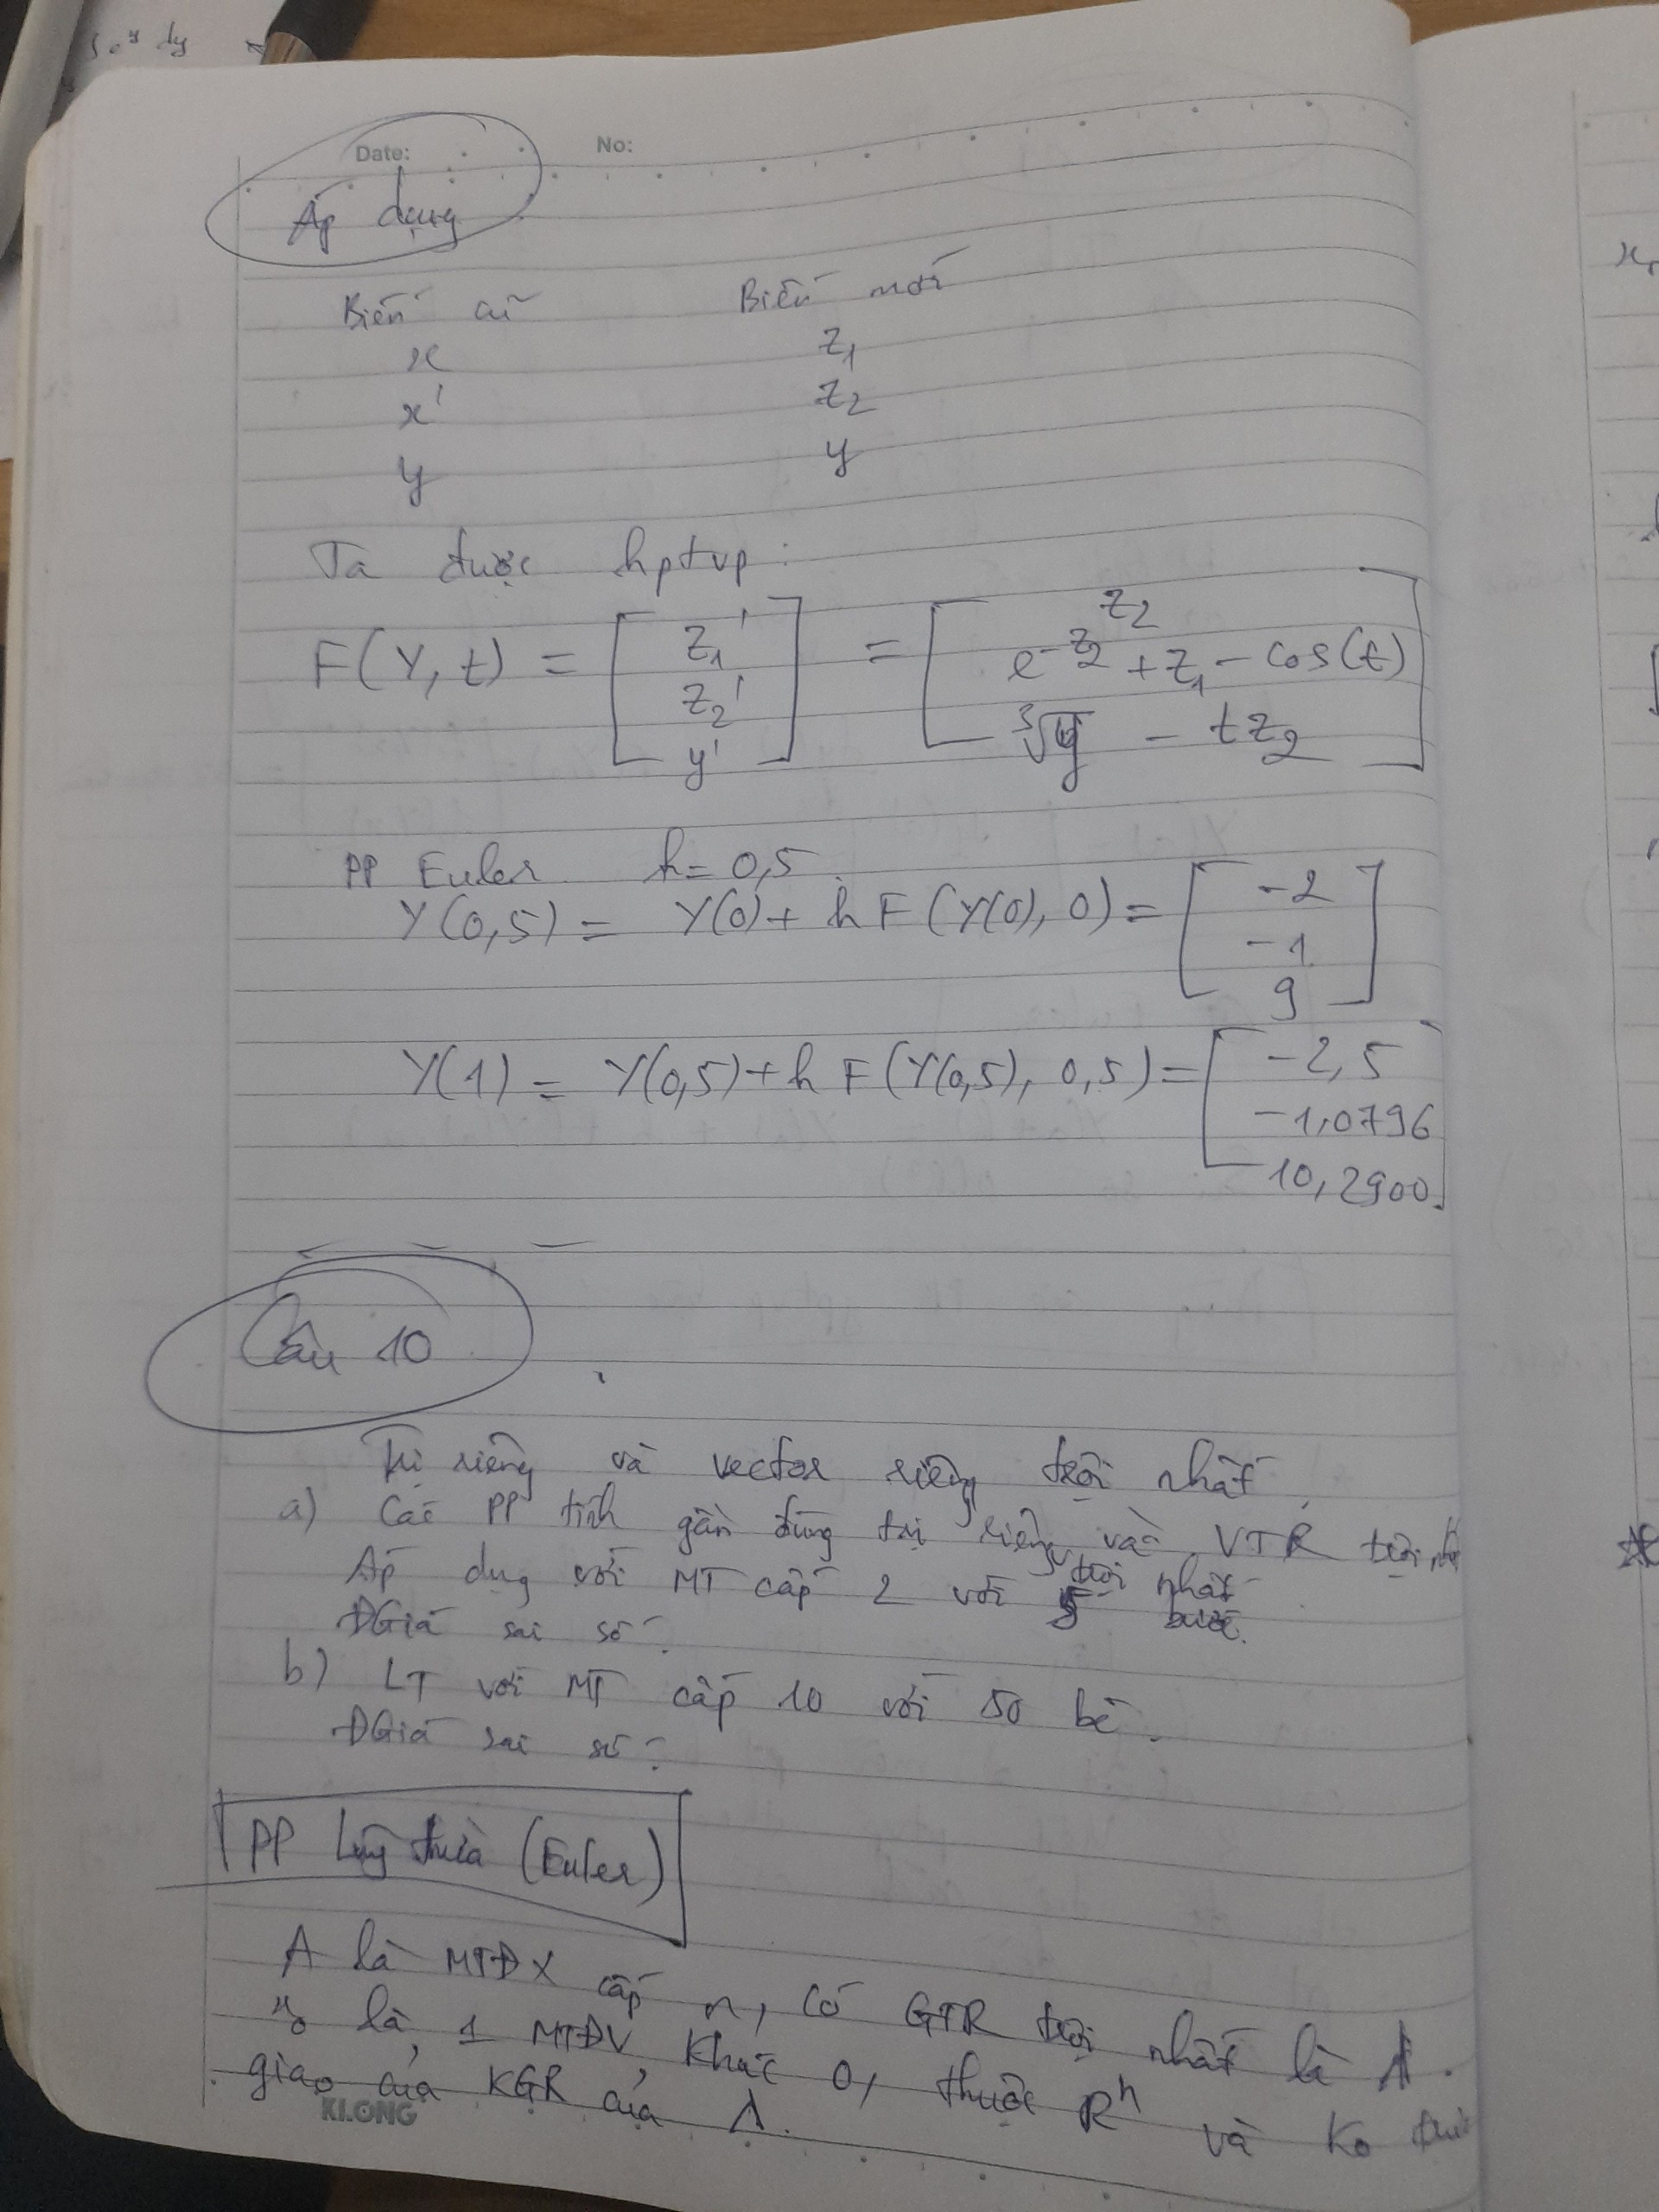 Date: No:
Áp dụng
Biến cũ Biến mới
x z₁
x' z₂
y y
Ta được hptvp:
F(Y, t) = [z₁' z₂' y'] = [z₂ e^-z₂ + z₁ - cos(t) ∛y - tz₂]
PP Euler h = 0,5
Y(0,5) = Y(0) + h F(Y(0), 0) = [-2 -1 9]
Y(1) = Y(0,5) + h F(Y(0,5), 0,5) = [-2,5 -1,0796 10,2900]
Câu 10
Trị riêng và vector riêng trội nhất
a) Các PP tính gần đúng trị riêng và VTR trội nhất
Áp dụng với MT cấp 2 với 5 bước.
ĐGiá sai số?
b) LT với MT cấp 10 với 50 bc.
ĐGiá sai số?
PP Luỹ thừa (Euler)
A là MTĐX cấp n, có GTR trội nhất là λ.
là 1 MTĐV khác 0, thuộc Rⁿ và ko
giao của KGR của λ.
KLONG